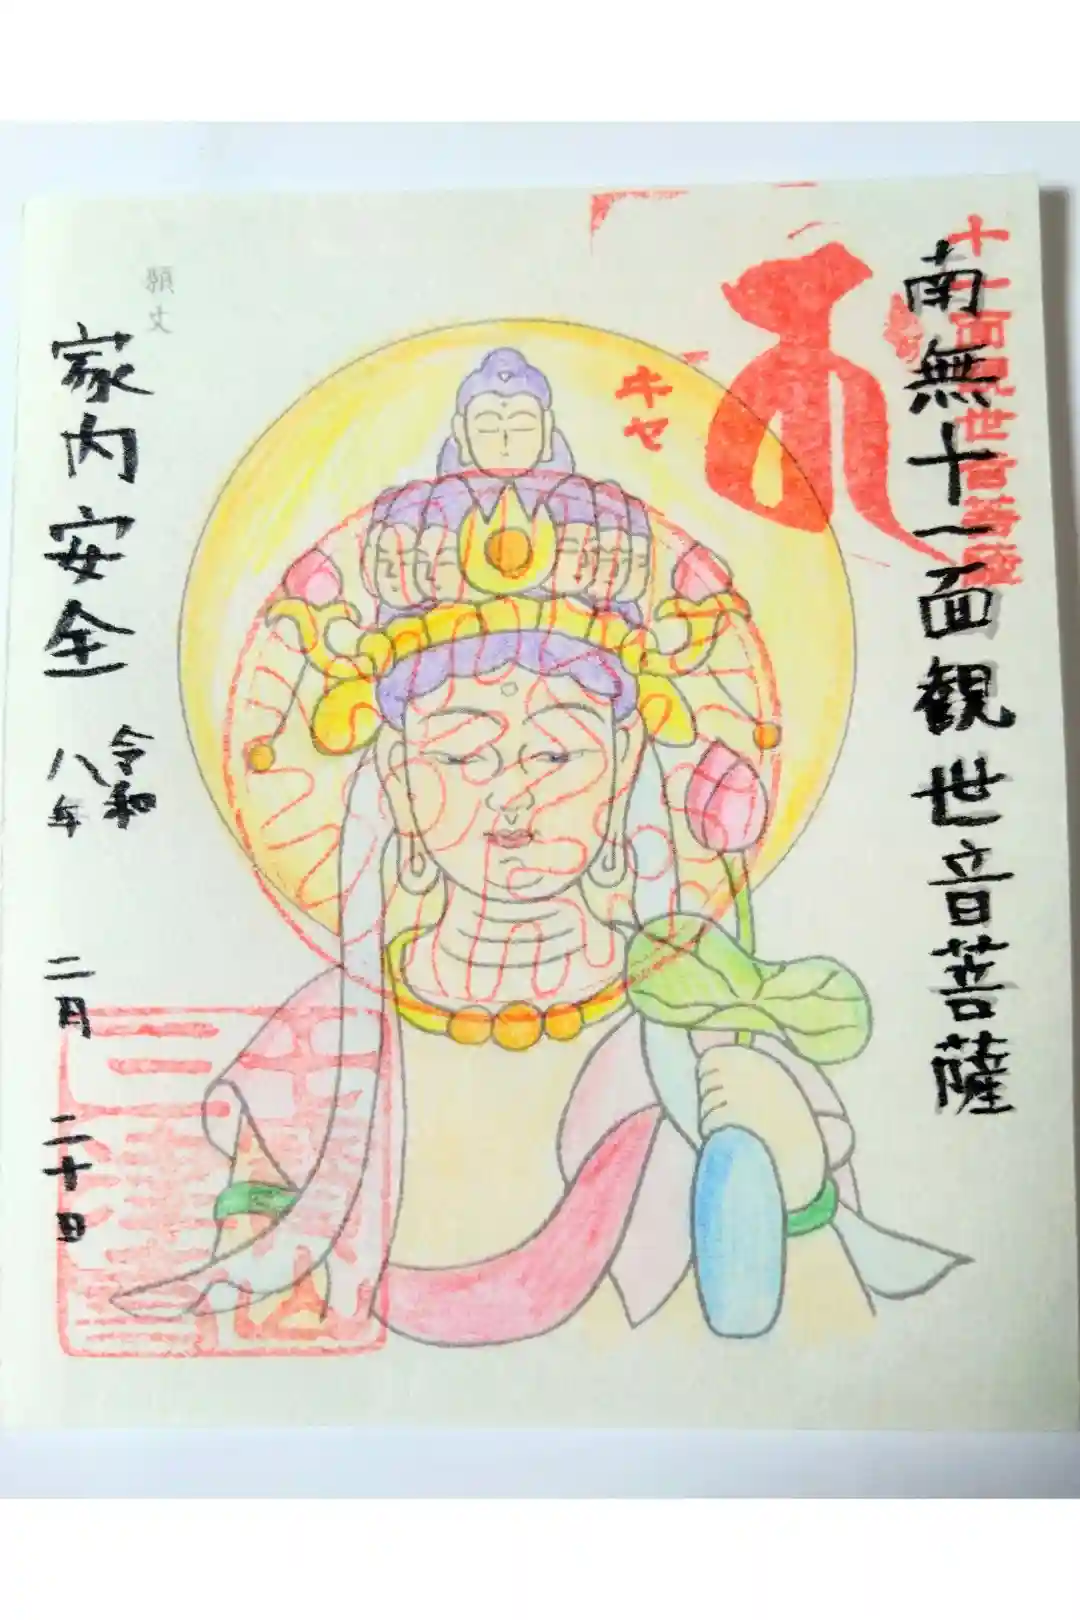 南無十一面観世音菩薩
十一面観世音菩薩
キャ
願文
家内安全
令和
八年
二月
二十日